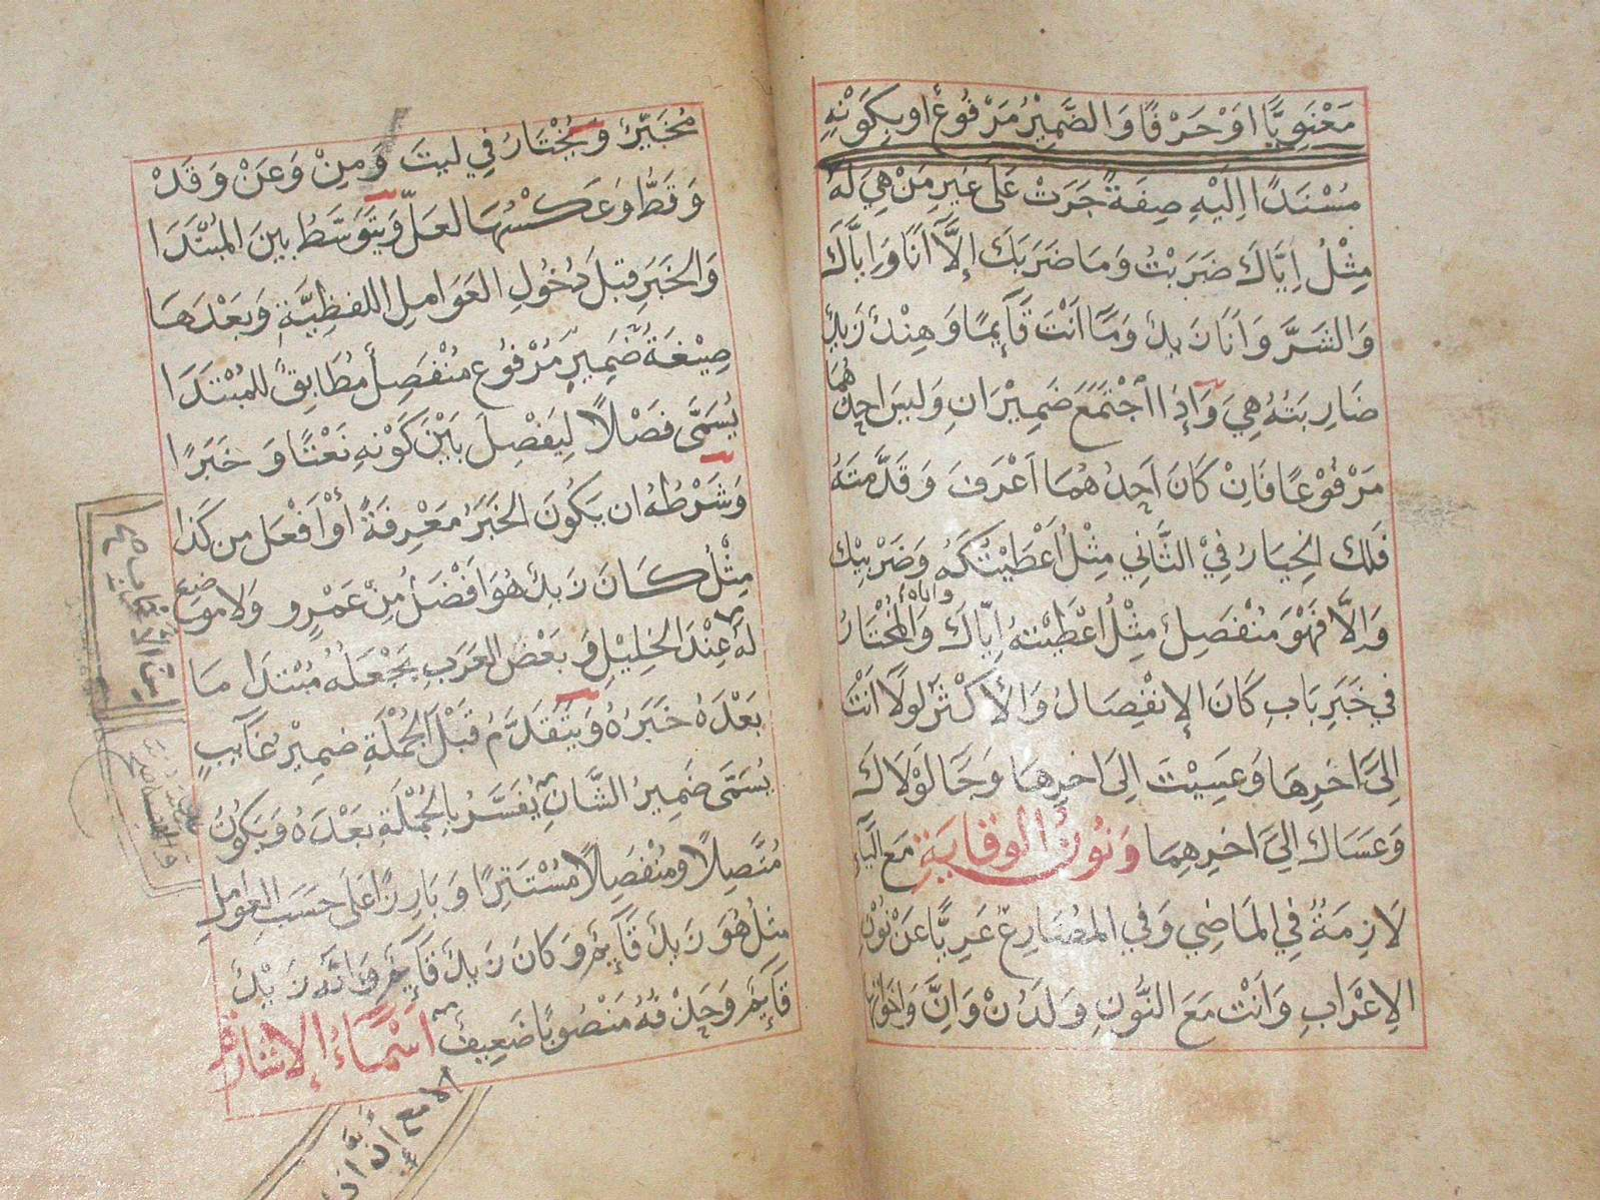 مَعْنَوِيًّا اَوْ حَرْفًا وَالضَّمِيْرُ مَرْفُوعٌ اَوْ بِكَوْنِهِ
مُسْنَدًا اِلَيْهِ صِفَةٌ جَرَتْ عَلَى غَيرِ مَنْ هِيَ لَهُ
مِثْلُ اِيَّاكَ ضَرَبْتُ وَمَا ضَرَبَكَ اِلَّا اَنَا وَاِيَّاكَ
وَالشَّرَّ وَاَنَا زَيدٌ وَمَا اَنْتَ قَآئِمًا وَهِنْدٌ زَيدٌ
ضَارِبَتُهُ هِيَ وَاِذَا اجْتَمَعَ ضَمِيْرَانِ وَلَيسَ اَحَدُهُمَا
مَرْفُوْعًا فَاِنْ كَانَ اَحَدُهُمَا اَعْرَفَ وَقَدَّمْتَهُ
فَلَكَ الخِيَارُ فِيْ الثَّانِي مِثْلُ اَعْطَيْتُكَهُ وَضَرْبِيْكَ
وَاِلَّا فَهْوَ مُنْفَصِلٌ مِثْلُ اَعْطَيْتُهُ اِيَّاكَ وَاِيَّاهُ وَالْمُخْتَارُ
فِي خَبَرِ بَابِ كَانَ الاِنْفِصَالُ وَالأَكْثَرُ لَولَا اَنْتَ
اِلَى اَخِرِهَا وَعَسِيْتَ اِلَى اَخِرِهَا وَجَا لَوْلَاكَ
وَعَسَاكَ اِلَى اَخِرِهِمَا وَنُونُ الوِقَايَةِ مَعَ اليَآءِ
لَازِمَةٌ فِي المَاضِي وَفِي المُضَارِعِ عَرِيًّا عَنْ نُوْنِ
الاِعْرَابِ وَاَنْتَ مَعَ النُّونِ وَلَدُنْ وَاِنَّ وَاَخَوَاتِهَا
مُخَيَّرٌ وَيُخْتَارُ فِي لَيتَ وَمِنْ وَعَنْ وَقَدْ
وَقَطْ وَعَكْسُهَا لَعَلَّ وَيَتَوَسَّطُ بَينَ المُبْتَدَا
وَالخَبَرِ قَبلَ دُخُولِ العَوَامِلِ اللَّفظِيَّةِ وَبَعْدَهَا
صِيْغَةُ ضَمِيرٍ مَرْفُوعٍ مُنْفَصِلٍ مُطَابِقٍ لِلْمُبْتَدَا
يُسَمَّى فَصْلًا لِيَفْصِلَ بَيْنَ كَوْنِهِ نَعْتًا وَخَبَرًا
وَشَرْطُهُ ان يَكُونَ الخَبَرُ مَعْرِفَةً أوْ اَفْعَلَ مِن كَذَا
مِثْلُ كَانَ زَيدٌ هُوَ اَفْضَلُ مِنْ عَمْرٍو وَلا مَوضِعَ
لَهُ عِنْدَ الخَلِيْلِ وَبَعْضُ العَرَبِ يَجْعَلُهُ مُبْتَدَا مَا
بَعْدَهُ خَبَرُهُ وَيَتَقَدَّمُ قَبْلَ الجُمْلَةِ ضَمِيْرُ غَآئِبٍ
يُسَمَّى ضَمِيرُ الشَّانِ يُفَسَّرُ بِالجُمْلَةِ بَعْدَهُ وَيَكُونُ
مُتَّصِلًا وَمُنْفَصِلًا مُسْتَتِرًا وَبَارِزًا عَلَى حَسَبِ العَوَامِلِ
مِثْلُ هُوَ زَيدٌ قَآئِمٌ وَكَانَ زَيدٌ قَآئِمٌ وَاِنَّهُ زَيْدٌ
قَآئِمٌ وَحَذْفُهُ مَنْصُوبًا ضَعِيفٌ اَسْمَاءُ الاِشَارَةِ
الا مع أنَّ